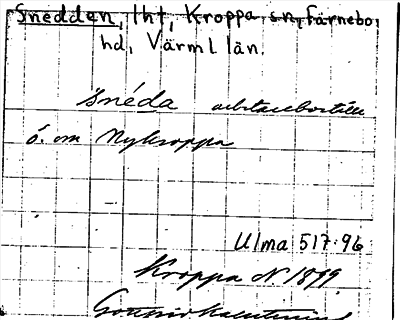 Snedden, lht, Kroppa sn, Färnebo
hd, Värml län.
snéda arbetareboställe
ö. om Nykroppa
Ulma 517:96
Kroppa N. 1899